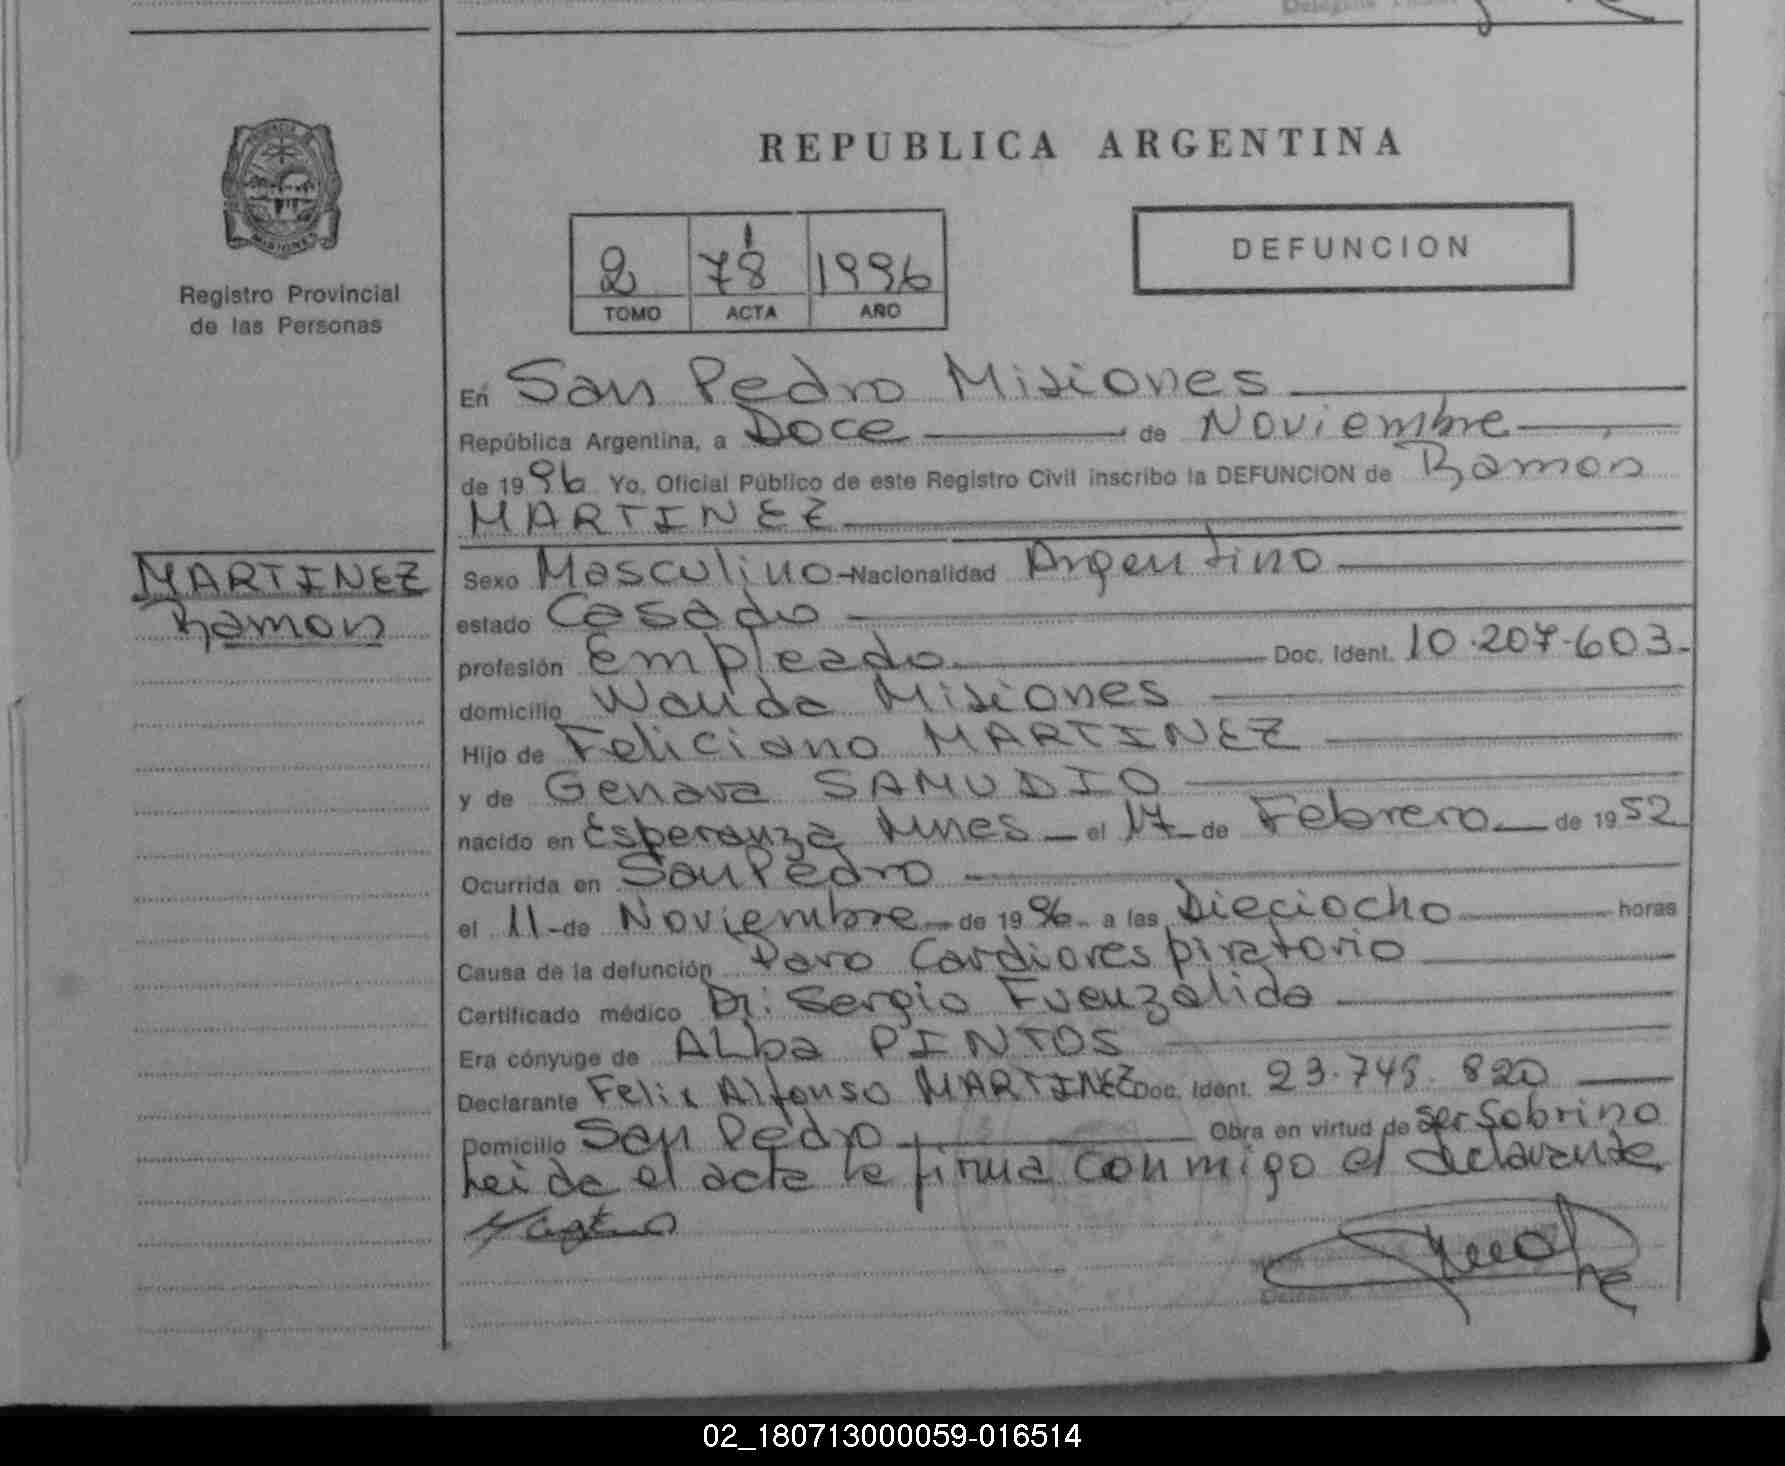 REPUBLICA ARGENTINA
MISIONES
Registro Provincial
de las Personas
2 78 1996
TOMO ACTA AÑO
DEFUNCION
En San Pedro Misiones
República Argentina, a Doce de Noviembre
de 1996 Yo, Oficial Público de este Registro Civil inscribo la DEFUNCION de Ramon
MARTINEZ
MARTINEZ
Ramon
Sexo Masculino Nacionalidad Argentino
estado Casado
profesión Empleado Doc. Ident. 10.207.603.
domicilio Wanda Misiones
Hijo de Feliciano MARTINEZ
y de Genara SAMUDIO
nacido en Esperanza Mnes el 17 de Febrero de 1952
Ocurrida en San Pedro
el 11 de Noviembre de 1996 a las Dieciocho horas
Causa de la defunción Paro Cardiorespiratorio
Certificado médico Dr: Sergio Fuenzalida
Era cónyuge de ALba PINTOS
Declarante Felix Alfonso MARTINEZ Doc. Ident. 23.748.820
Domicilio San Pedro Obra en virtud de ser Sobrino
Leida el acta la firma conmigo el declarante
02_180713000059-016514